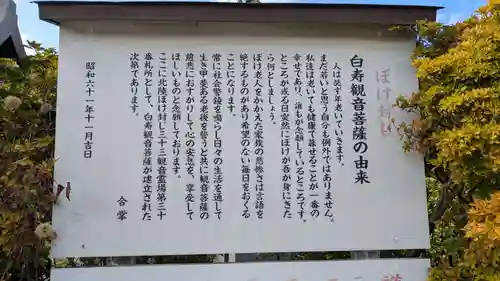 白寿観音菩薩の由来
人は必ず年老いていきます。
まだ若いと思う自分も例外ではありません。
私達は老いても健康で暮せることが一番の
幸せであり、誰もが念願しているところです。
ところが或る日突然にぼけが吾が身にきた
ら何としましょう。
ぼけ老人をかかえた家族の悲惨さは言語を
絶するものがあり希望のない毎日をおくる
ことになります。
常に社会警鐘を鳴らし日々の生活を通して
生き甲斐ある老後を誓うと共に観音菩薩の
慈悲におすがりして心の安息を、享受して
ほしいものと念願しております。
ここに北陸ぼけ封じ三十三観音霊場第三十
番札所として、白寿観音菩薩が建立された
次第であります。
合掌
昭和六十一年十一月吉日